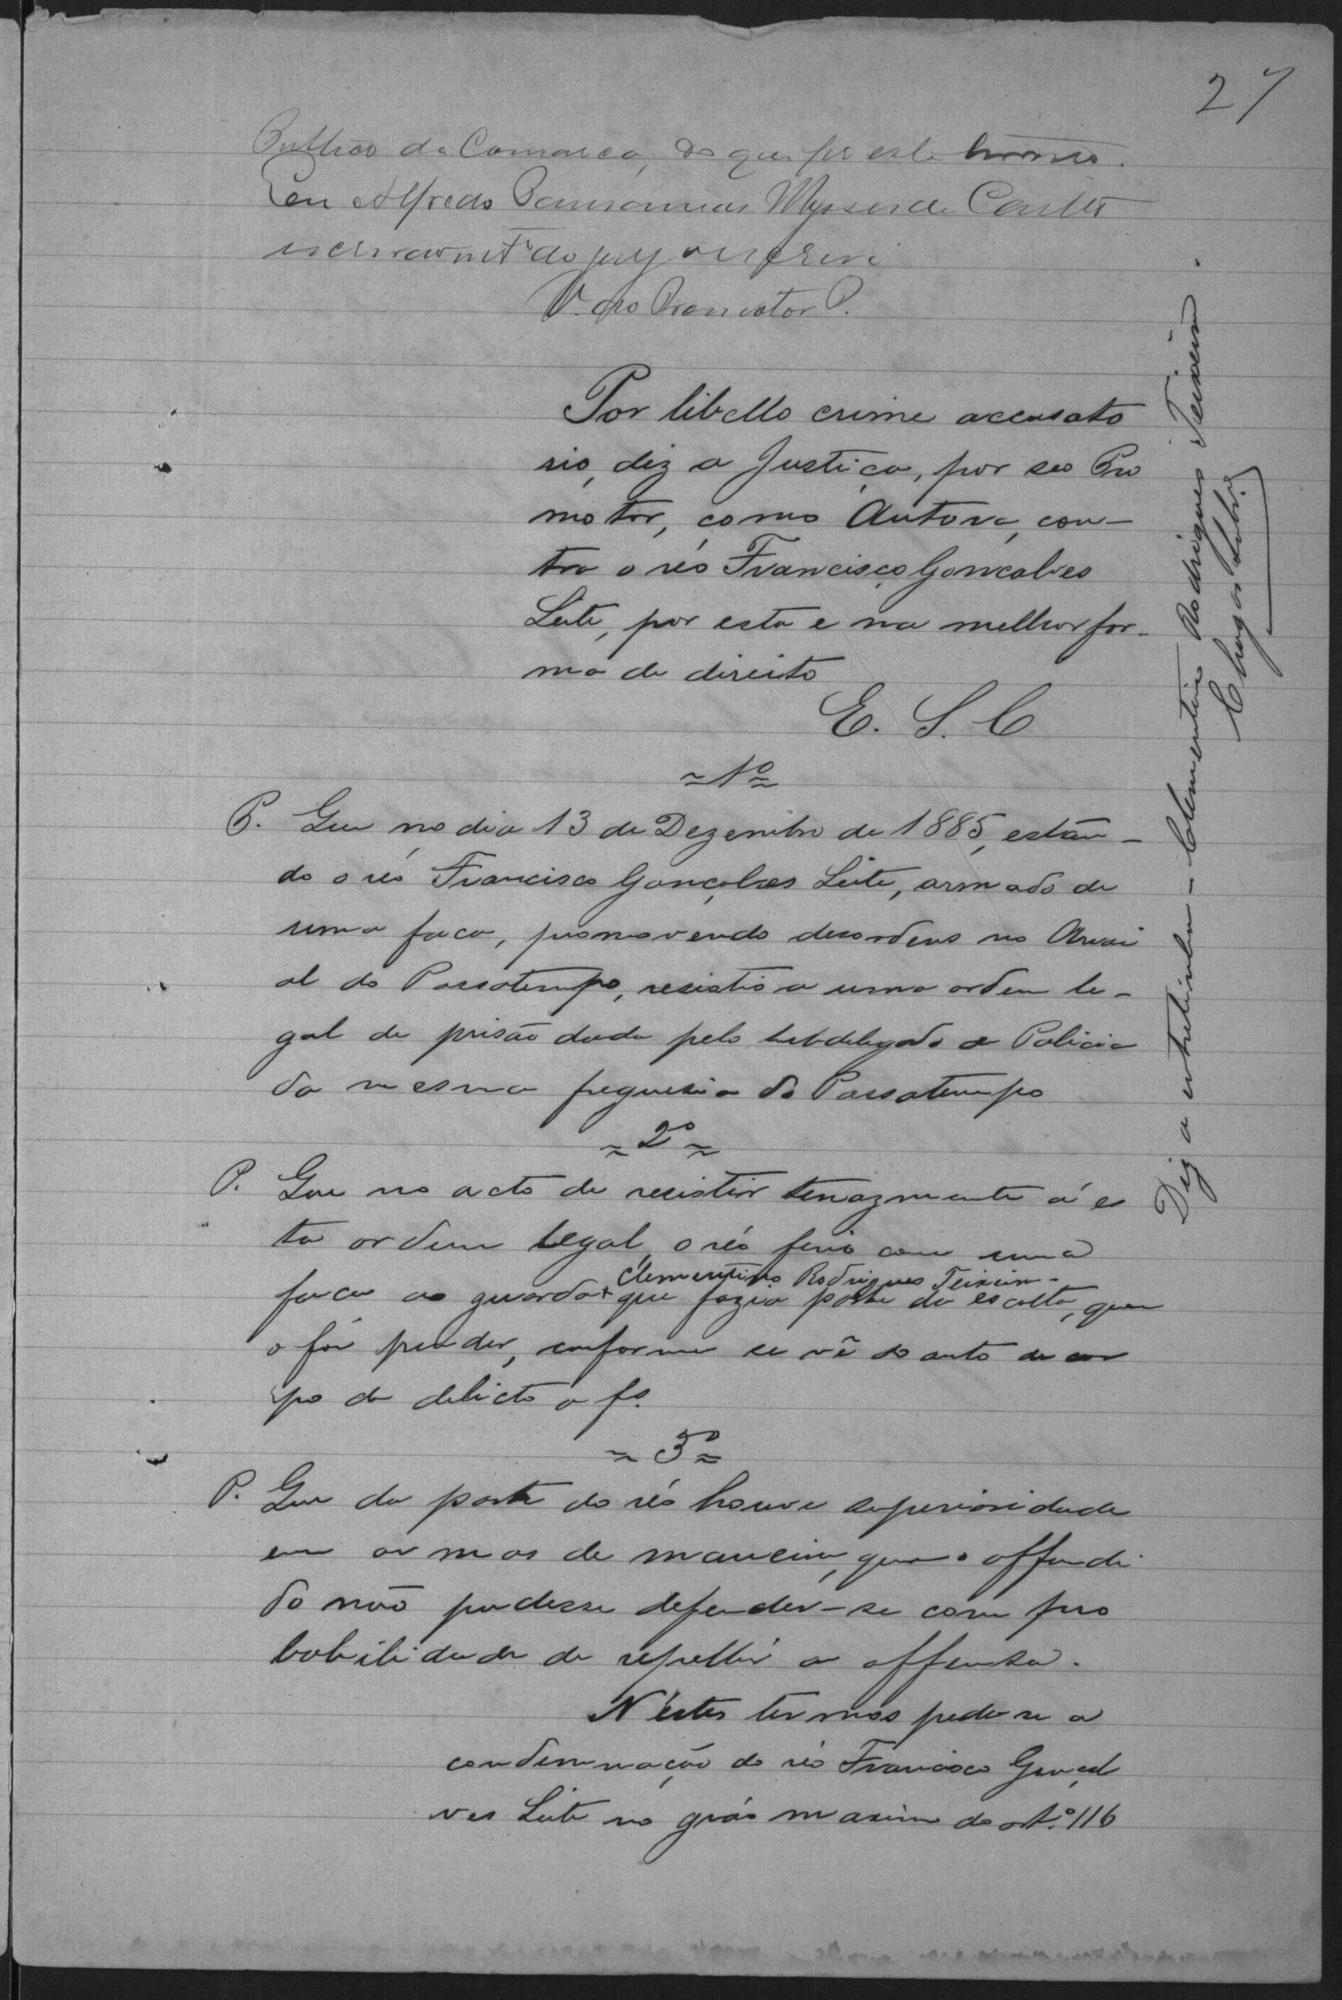 27
Publico da Comarca, do que fiz este termo.
Eu Alfredo Pausanias Castro
do jury o escrevi
V. ao Promotor P.
Por libello crime accusato
rio, diz a Justiça, por seo Pro
motor, como Autora, con-
tra o réo Francisco Gonçalves
Leite, por esta e na melhor for-
ma de direito
E. S. C
1º
P. Que no dia 13 de Dezembro de 1885, estan-
do o réo Francisco Gonçalves Leite, armado de
uma faca, promovendo desordens no Arrai
al do Passatempo, resistio a uma ordem le-
gal de prisão dada pelo subdelegado de Policia
da mesma freguesia do Passatempo
2º
P. Que no acto de resistir tenazmente á es
ta ordem legal, o réo ferio com uma
Clementino Rodrigues Teixeira-
faca ao guarda + que fazia parte da escolta, que
o foi prender, conforme se vê do auto de cor
po de delicto a fs.
3º
P. Que da parte do réo houve superioridade
em armas de maneira, que o offendi
do não pudesse defender-se com pro
babilidade de repellir a offensa.
N'estes termos pede-se a
condemnação do réo Francisco Gonçal
ves Leite no gráo maximo do artº. 116
Diz a entrelinha - Clementino Rodrigues Teixeira.
Chagas